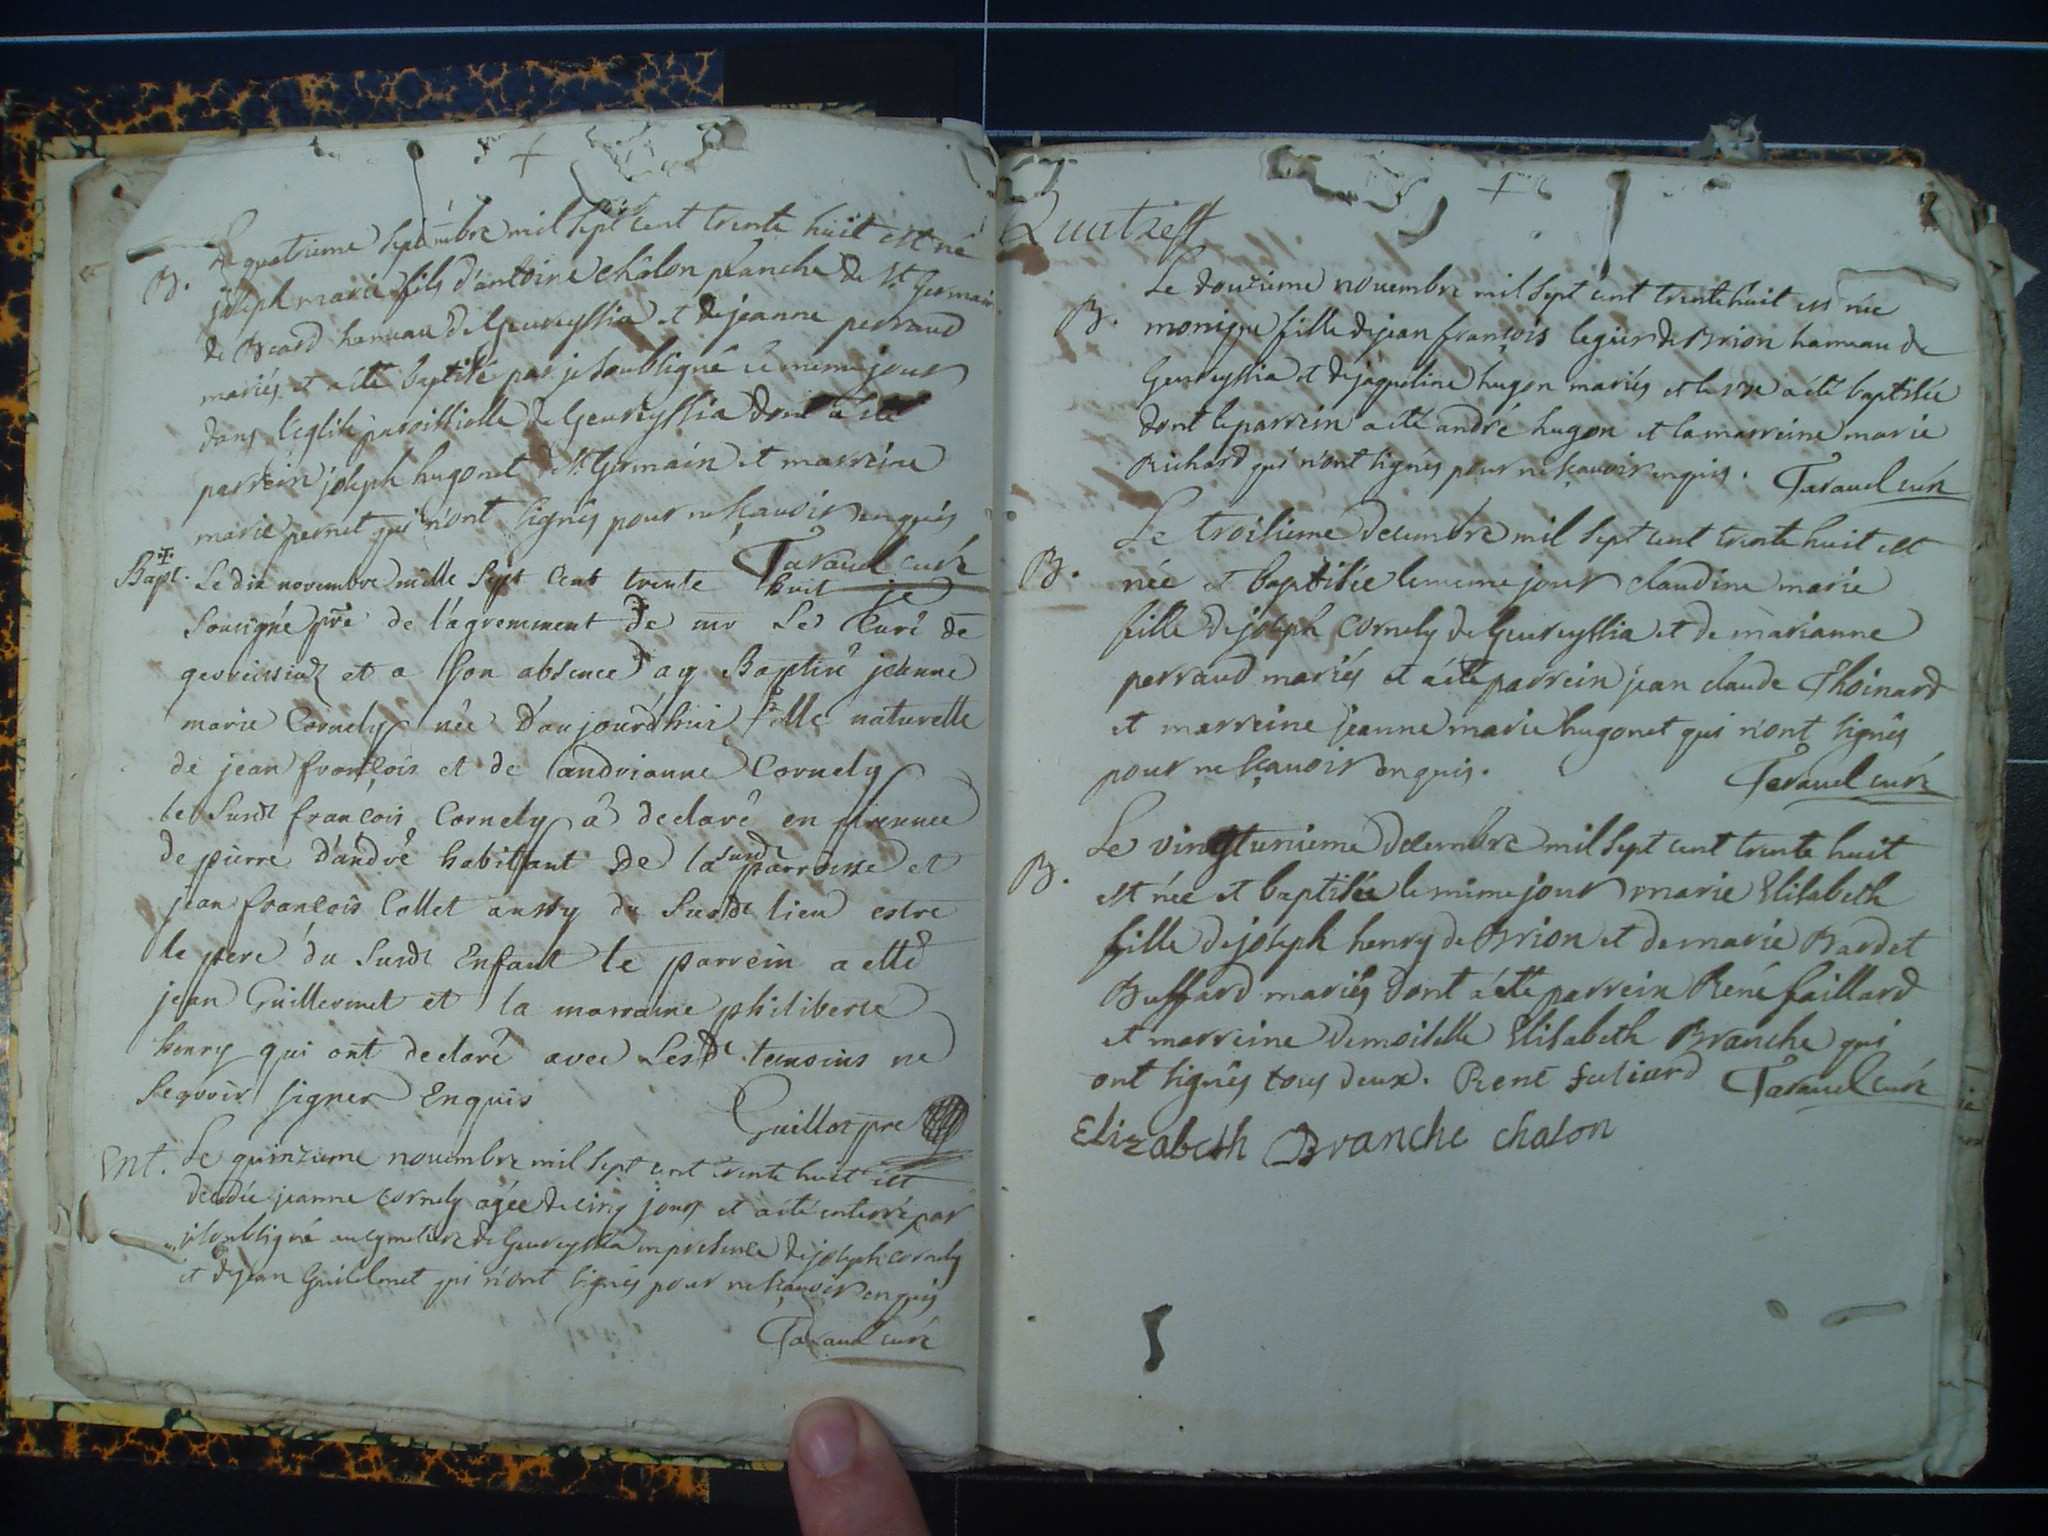 B. Le quatrieme septembre mil sept cent trente huit est né
joseph marie fils d'antoine châlon planche de St Germain
de Beard hameau de Geureyssia et de jeanne perraud
mariés et a été baptisé par je soubsigné le meme jour
dans l'eglise paroissielle de Geureyssia dont a été
parrein joseph hugonet de St Germain et marreine
marie pernet qui n'ont signés pour ne sçavoir enquis
Taravel curé
Bapt. Le dix novembre mille sept cent trente huit je
sousigné pre de l'agremment de mr Le Curé de
gevreissiaz et a son absence ay Baptisé jeanne
marie Cornely née d'aujourd'huy fille naturelle
de jean françois et de andrianne Cornely
le susdt françois Cornely a declaré en presence
de pierre d'andré habitant de la susdt parroisse et
jean françois Collet aussy du susdt lieu estre
le pere du susdt Enfant le parrein a etté
jean Guillermet et la marraine philiberte
henry qui ont declaré avec Lesdt temoins ne
sçavoir signer Enquis
Guillot pre
Ent. Le quinzieme novembre mil sept cent trente huit est
decedée jeanne cornely agée de cinq jours et a été enterré par
je soubsigné au cymetiere de Geureyssia en presence de joseph cornely
et de jean Guillelmet qui n'ont signés pour ne sçavoir enquis
Taravel curé
B. Le douzieme novembre mil sept cent trente huit est née
monique fille de jean françois legier de Brion hameau de
Geureyssia et de jaqueline hugon mariés et le a été baptisée
dont le parrein a été andré hugon et la marreine marie
Richard qui n'ont signés pour ne sçavoir enquis. Taravel curé
Le troisieme decembre mil sept cent trente huit est
B. née et baptisée le meme jour claudine marie
fille de joseph Cornely de Geureyssia et de marianne
perraud mariés et a été parrein jean claude Thoinard
et marreine jeanne marie hugonet qui n'ont signés
pour ne sçavoir enquis.
Taravel curé
Le vingtunieme decembre mil sept cent trente huit
B. est née et baptisée le mime jour marie Elisabeth
fille de joseph henry de Brion et de marie Bardet
Buffard mariés dont a été parrein René faillard
et marreine demoiselle Elisabeth Branche qui
ont signés tous deux. René Taravel curé
Elizabeth Branche chalon